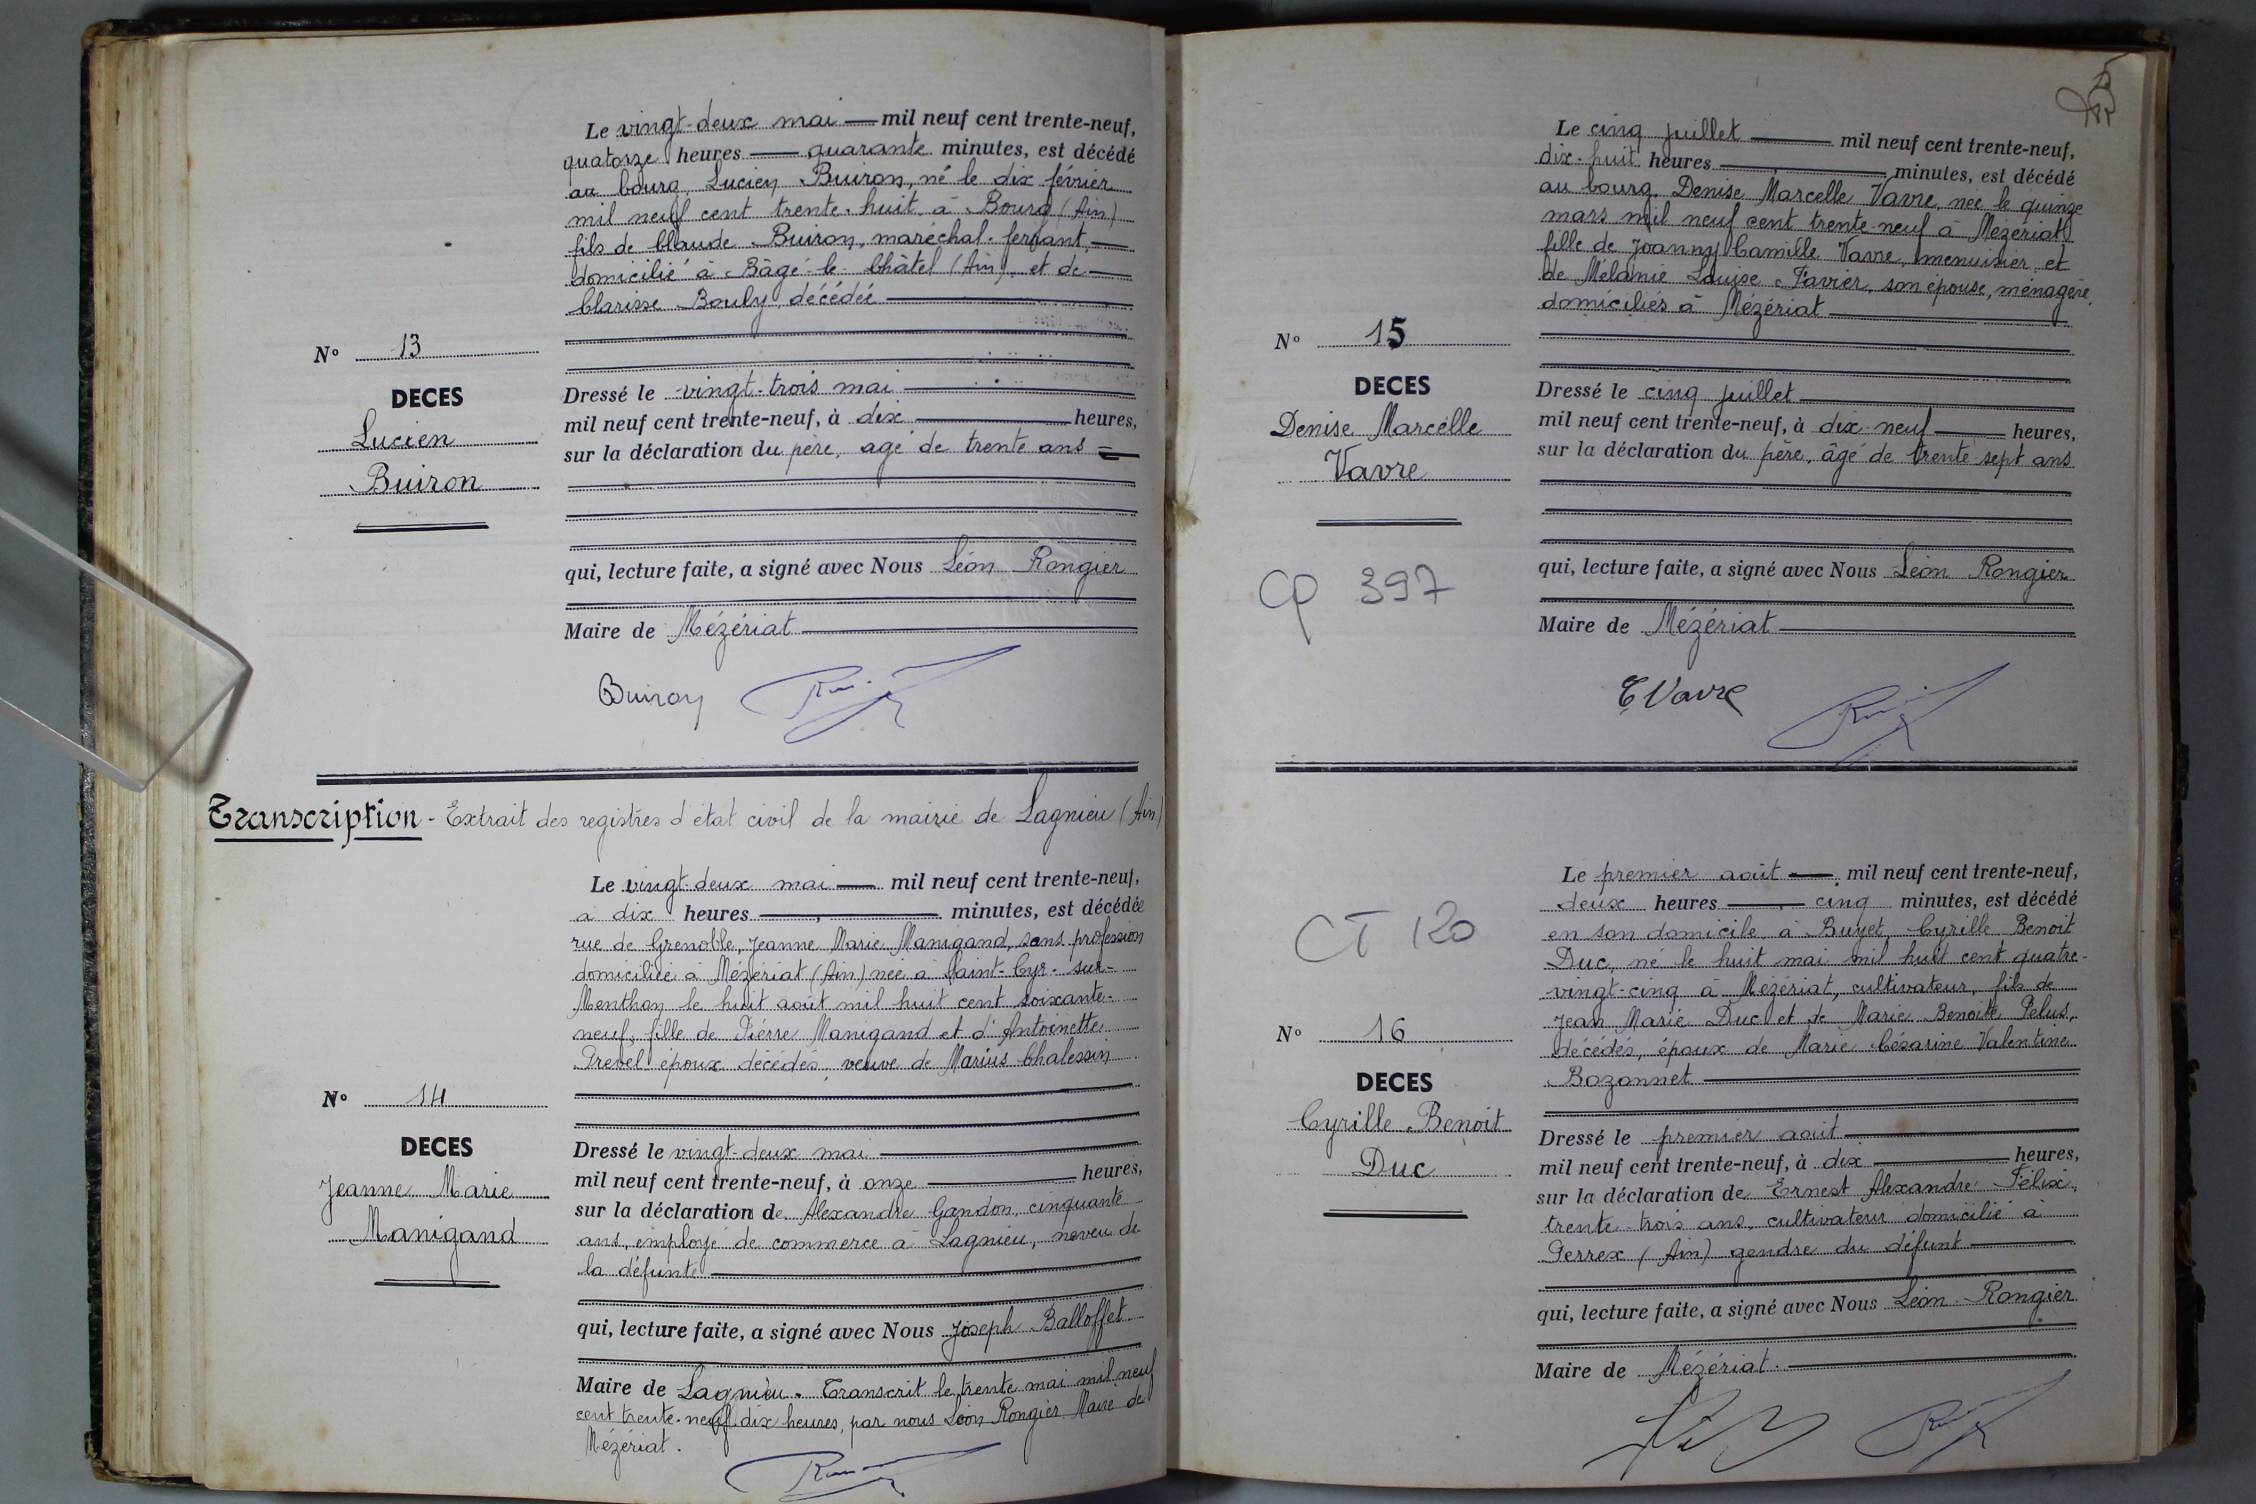 Le vingt-deux mai — mil neuf cent trente-neuf,
quatorze heures — quarante minutes, est décédé
au bourg, Lucien Buiron, né le dix février
mil neuf cent trente-huit à Bourg (Ain)
fils de Claude Buiron, maréchal-ferrant,
domicilié à Bâgé-le-Châtel (Ain), et de
Clarisse Bouly, décédée
N° 13
DECES
Lucien
Buiron
Dressé le vingt-trois mai
mil neuf cent trente-neuf, à dix heures,
sur la déclaration du père, agé de trente ans
qui, lecture faite, a signé avec Nous Léon Rongier
Maire de Mézériat
Buiron
Transcription - Extrait des registres d'état civil de la mairie de Lagnieu (Ain)
Le vingt-deux mai — mil neuf cent trente-neuf,
à dix heures — minutes, est décédée
rue de Grenoble, Jeanne Marie Manigand, sans profession
domiciliée à Mézériat (Ain) née à Saint-Cyr-sur-
Menthon le huit août mil huit cent soixante-
neuf, fille de Pierre Manigand et d'Antoinette
Prevel époux décédés, veuve de Marius Chalessin
N° 14
DECES
Jeanne Marie
Manigand
Dressé le vingt-deux mai
mil neuf cent trente-neuf, à onze heures,
sur la déclaration de Alexandre Gandon, cinquante
ans, employé de commerce à Lagnieu, neveu de
la défunte
qui, lecture faite, a signé avec Nous Joseph Balloffet
Maire de Lagnieu. Transcrit le trente mai mil neuf
cent trente-neuf dix heures, par nous Léon Rongier Maire de
Mézériat.
Le cinq juillet — mil neuf cent trente-neuf,
dix-huit heures — minutes, est décédé
au bourg, Denise Marcelle Vavre, née le quinze
mars mil neuf cent trente-neuf à Mézériat
fille de Joanny Camille Vavre, menuisier, et
de Mélanie Louise Favier, son épouse, ménagère,
domiciliés à Mézériat
N° 15
DECES
Denise Marcelle
Vavre
CP 397
Dressé le cinq juillet
mil neuf cent trente-neuf, à dix-neuf heures,
sur la déclaration du père, âgé de trente-sept ans
qui, lecture faite, a signé avec Nous Léon Rongier
Maire de Mézériat
Vavre
CT 120
Le premier août — mil neuf cent trente-neuf,
deux heures — cinq minutes, est décédé
en son domicile à Buyet, Cyrille Benoit
Duc, né le huit mai mil huit cent quatre-
vingt-cinq à Mézériat, cultivateur, fils de
Jean Marie Duc et de Marie Benoîte Pelus,
décédés, époux de Marie Césarine Valentine
Bozonnet
N° 16
DECES
Cyrille Benoit
Duc
Dressé le premier août
mil neuf cent trente-neuf, à dix heures,
sur la déclaration de Ernest Alexandre Félix,
trente-trois ans, cultivateur domicilié à
Perrex (Ain) gendre du défunt
qui, lecture faite, a signé avec Nous Léon Rongier
Maire de Mézériat.